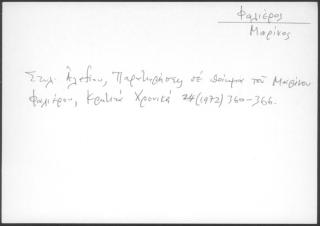 Φαλιέρος
Μαρίνος
Στυλ. Ἀλεξίου, Παρατηρήσεις σέ ποίημα τοῦ Μαρίνου
Φαλιέρου, Κρητικά Χρονικά 24 (1972) 360-366.